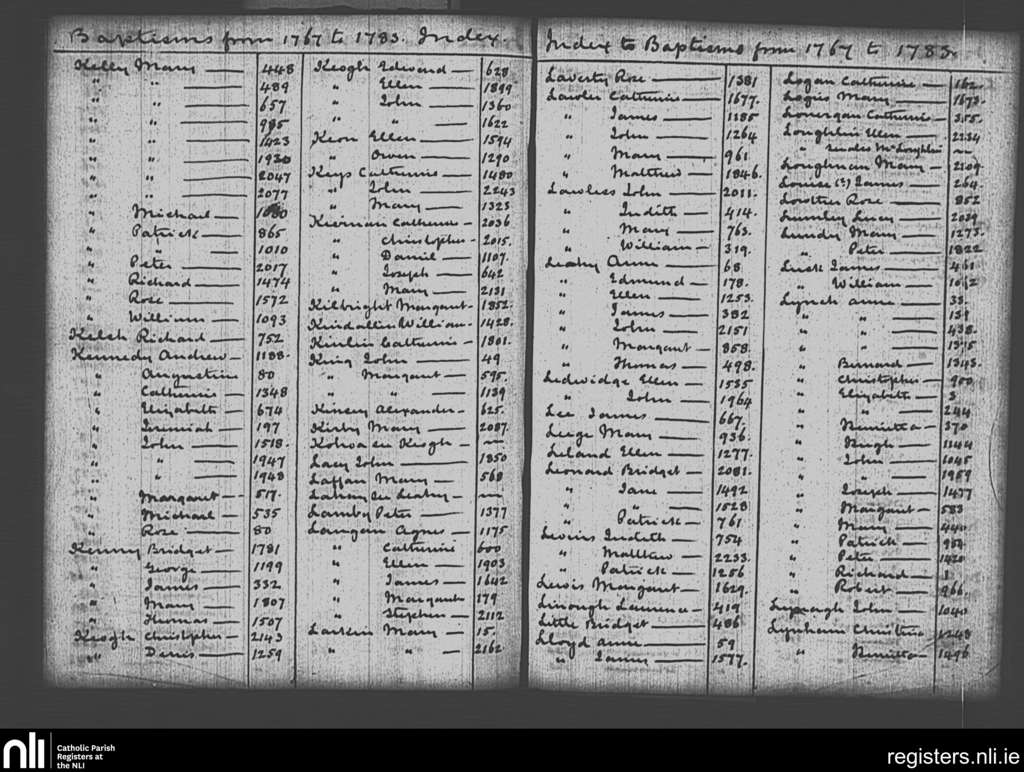 Baptisms from 1767 to 1783. Index.
Kelly Mary — 448
" " — 489
" " — 657
" " — 985
" " — 1423
" " — 1930
" " — 2047
" " — 2077
" Michael — 1080
" Patrick — 865
" " — 1010
" Peter — 2017
" Richard — 1474
" Rose — 1572
" William — 1093
Kelsh Richard — 752
Kennedy Andrew — 1188.
" Augustine 80
" Catherine — 1348
" Elizabeth — 674
" Jeremiah — 197
" John — 1518.
" " — 1947
" " — 1948
" Margaret — 517.
" Michael — 535
" Rose — 80
Kenny Bridget — 1781
" George — 1199
" James — 332
" Mary — 1807
" Thomas — 1507
Keogh Christopher — 2143
" Denis — 1259
Keogh Edward — 628
" Ellen — 1899
" John — 1360
" " — 1622
Keon Ellen — 1594
" Owen — 1290
Keys Catherine — 1480
" John — 2243
" Mary — 1323
Kiernan Catherine — 2036
" Christopher — 2015.
" Daniel — 1107.
" Joseph — 642
" Mary — 2131
Kilbright Margaret — 1852.
William — 1428.
Catherine — 1801.
King John — 49
" Margaret — 595.
" " — 1139
Kinsey Alexander — 625.
Kirby Mary — 2087.
see Keogh —
Lacy John — 1850
Laffan Mary — 568
Lahey see Leahy —
Lamby Peter — 1377
Langan Agnes — 1175
" Catherine 600
" Ellen — 1903
" James — 1642
" Margaret 179
" Stephen — 2112
Larkin Mary — 15.
" " — 2162
Index to Baptisms from 1767 to 1783.
Laverty Rose — 1381
Lawler Catherine — 1677.
" James — 1185
" John — 1264
" Mary — 961
" Matthew — 1846.
Lawless John — 2011.
" Judith — 414.
" Mary — 763.
" William — 319.
Leahy Anne — 68
" Edmund — 178.
" Ellen — 1253.
" James — 382
" John — 2151
" Margaret — 858.
" Thomas — 498.
Ledwidge Ellen — 1535
" John — 1964
Lee James — 667.
Mary — 936.
Leland Ellen — 1277.
Leonard Bridget — 2081.
" Jane — 1492
" " — 1528
" Patrick — 761
Judith — 754
" Matthew — 2233.
" Patrick — 1256
Lewis Margaret — 1629.
Linough Laurence — 419
Little Bridget — 486
Lloyd Anne — 59
" James — 1577.
Logan Catherine — 162.
Mary — 1673.
Lonergan Catherine — 355.
Loughlin Ellen — 2234
" see also McLoughlin —
Loughman Mary — 2109.
James — 264.
Lowther Rose — 852
Lumley Lucy — 2039
Lundy Mary — 1273.
" Peter — 1822
Lusk James — 461
" William — 1012
Lynch Anne — 33.
" " — 139
" " — 438.
" " — 1375
" Bernard — 1343.
" Christopher — 900
" Elizabeth — 3
" " — 244
" Henrietta — 370
" Hugh — 1344
" John — 1045
" " — 1959
" Joseph — 1437
" Margaret — 583
" Mary — 440
" Patrick — 954
" Peter — 1420
" Richard — 1
" Robert — 966.
John — 1040
Lynham Christina 1248
" Henrietta — 1496
nli
Catholic Parish
Registers at
the NLI
registers.nli.ie